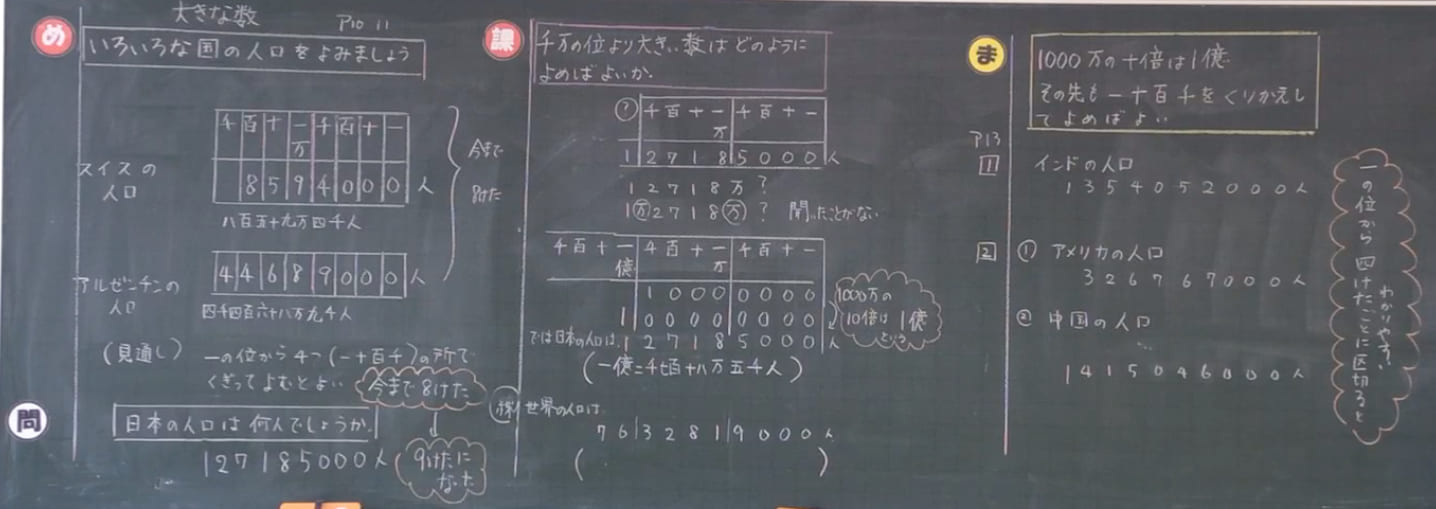 大きな数 P10 11
め
いろいろな国の人口をよみましょう
千百十一千百十一
万
スイスの
人口
8594000人
八百五十九万四千人
今まで
8けた
アルゼンチンの
人口
44689000人
四千四百六十八万九千人
(見通し) 一の位から4つ(一十百千)の所で
くぎってよむとよい
今まで8けた
問
日本の人口は何人でしょうか。
127185000人
9けたに
なった
課
千万の位より大きい数はどのように
よめばよいか。
? 千百十一千百十一
万
127185000人
12718万?
1万2718万? 聞いたことがない
千百十一千百十一千百十一
億 万
10000000
100000000
1000万の
10倍は1億
という
では日本の人口は、127185000人
(一億二千七百十八万五千人)
世界の人口は
76|3281|9000人
( )
ま
1000万の十倍は1億
その先も一十百千をくりかえし
てよめばよい
P13
1 インドの人口
1354052000人
2 ① アメリカの人口
326767000人
② 中国の人口
1415046000人
一の位から四けたごとに区切ると
わかりやすい